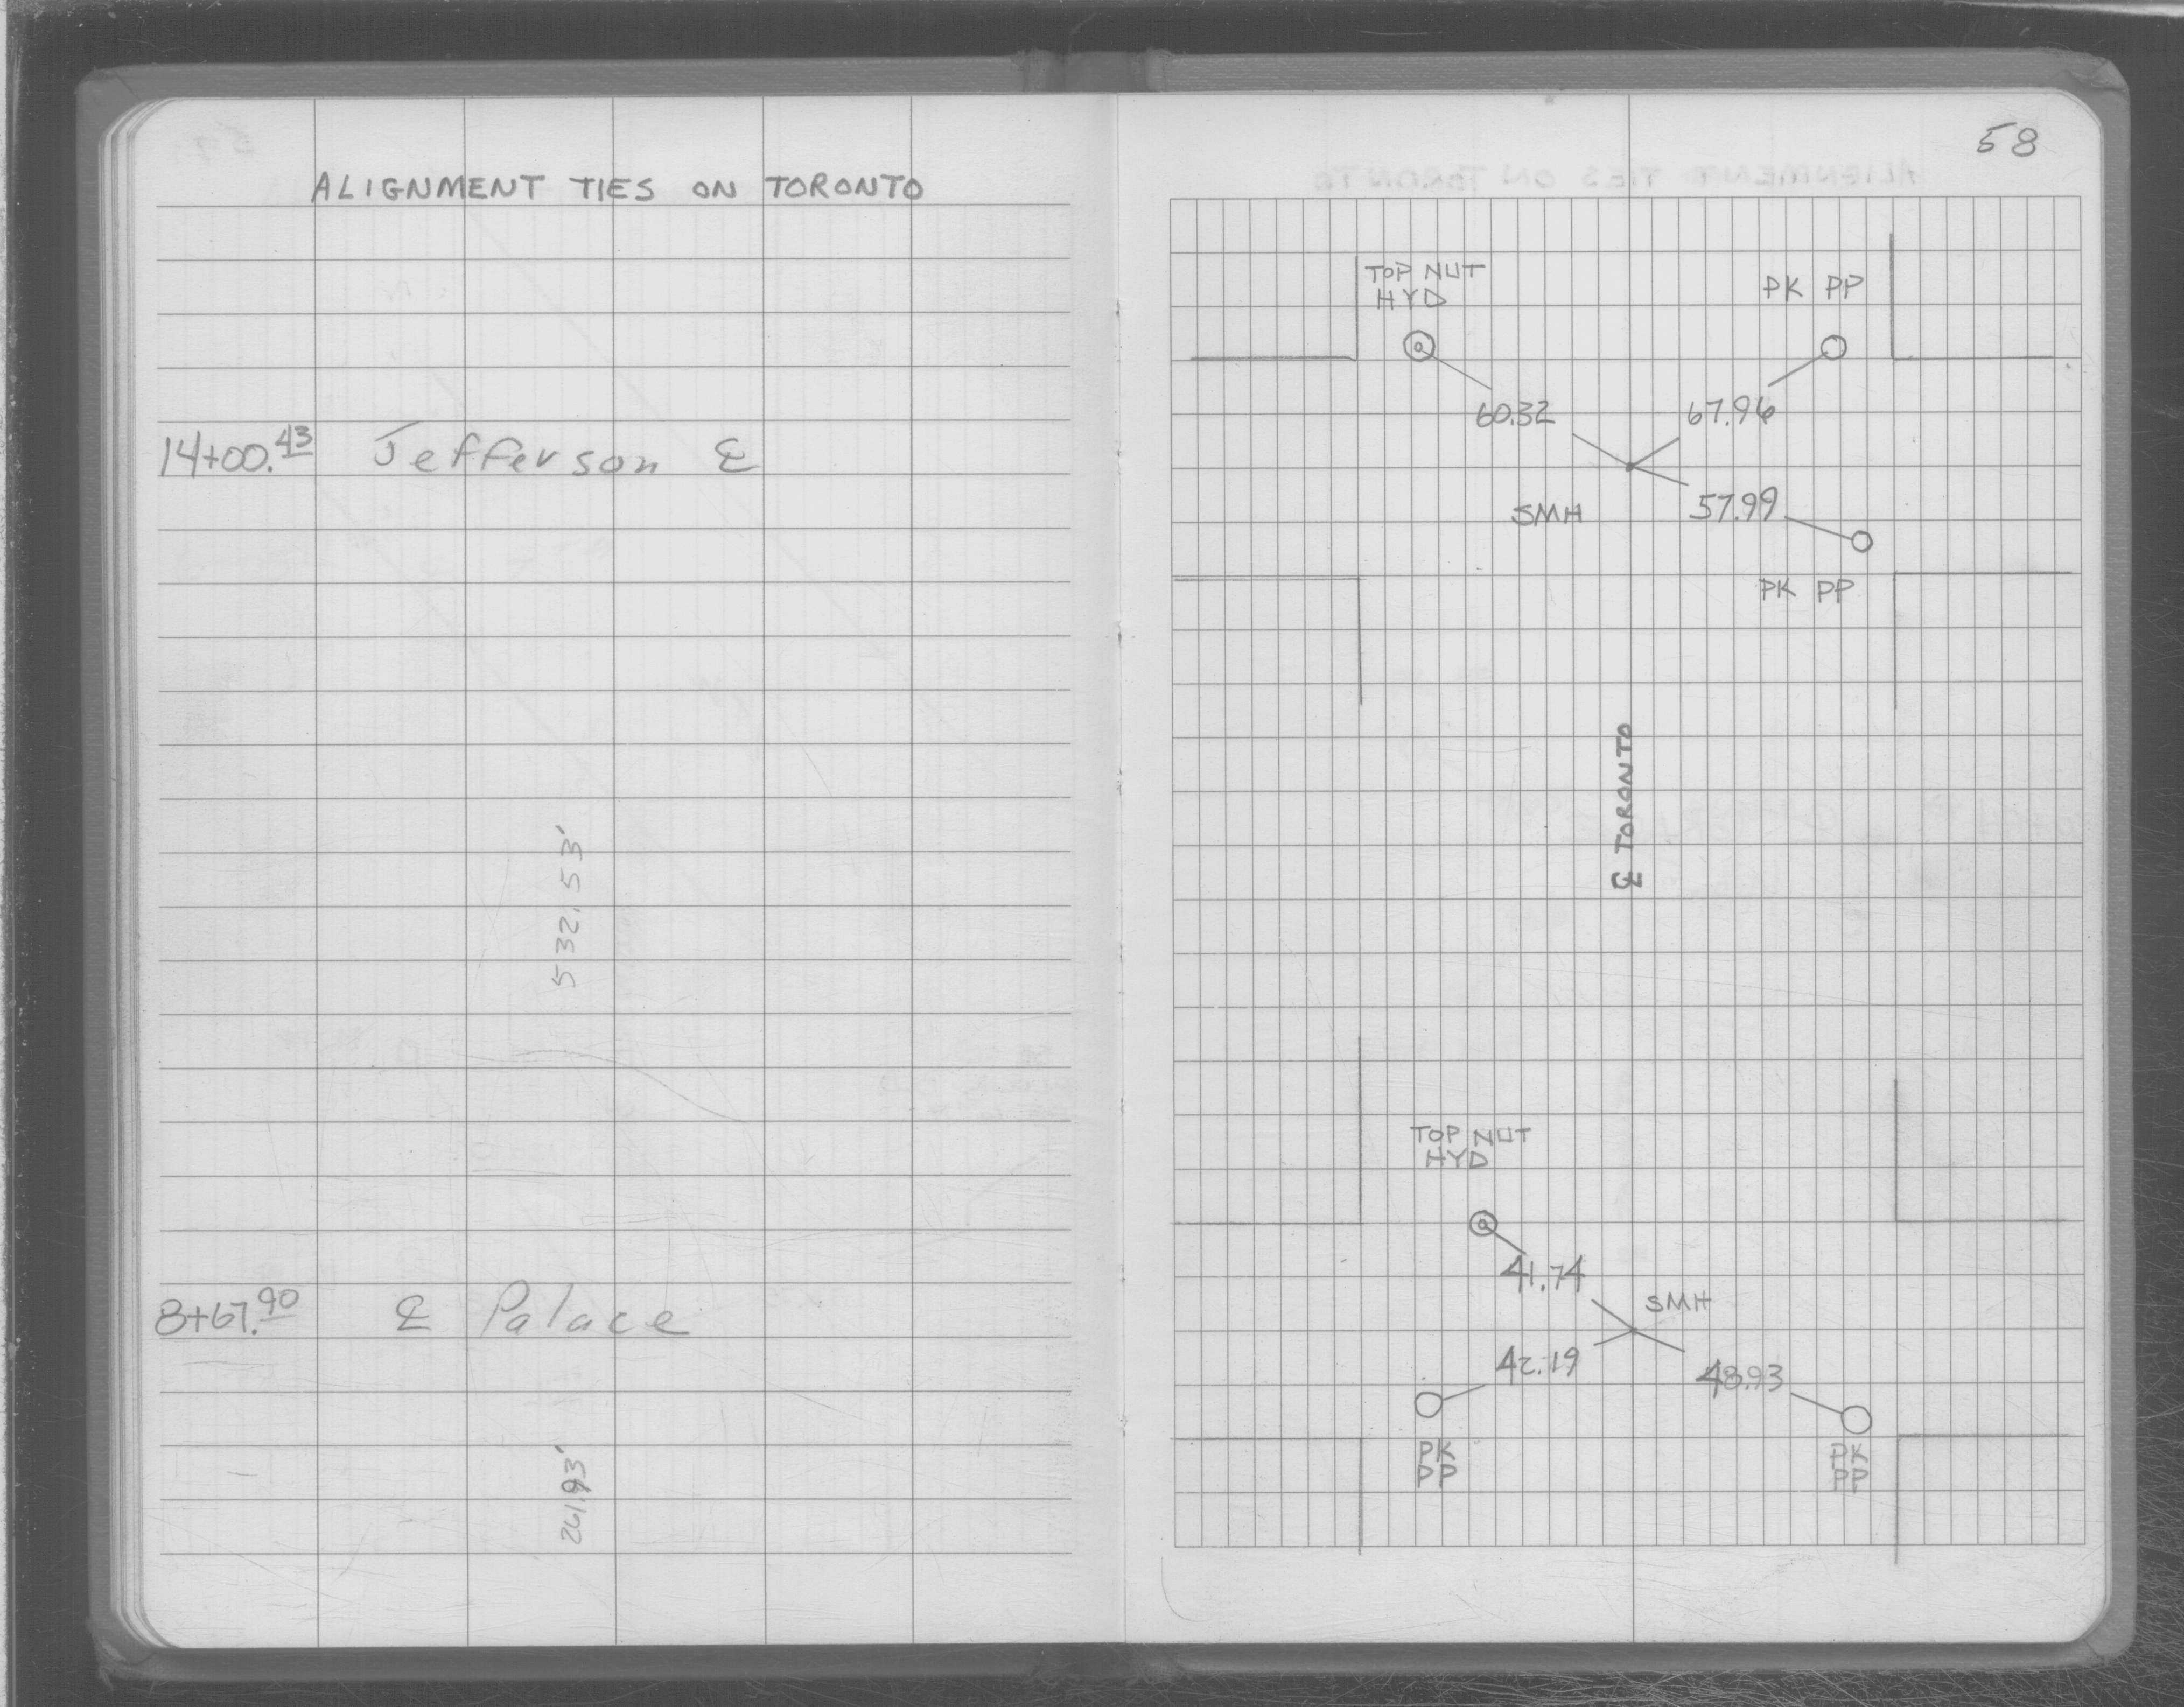 ALIGNMENT TIES ON TORONTO
14+00.43 Jefferson ℄
532.53'
8+67.90 ℄ Palace
261.93'
58
TOP NUT
HYD
PK PP
60.32
67.96
SMH
57.99
PK PP
℄ TORONTO
TOP NUT
HYD
41.74
SMH
42.19
48.93
PK
PP
PK
PP